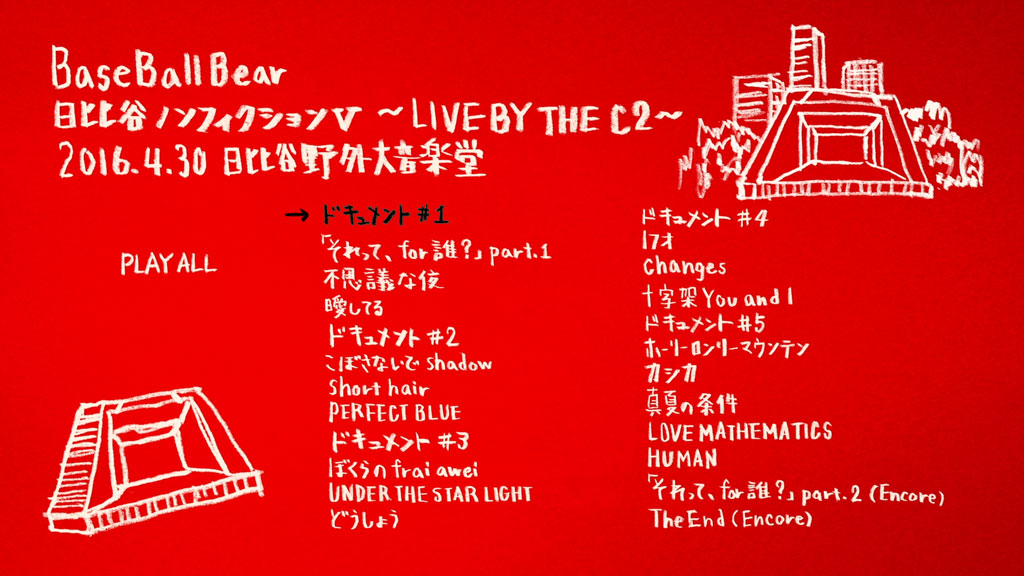 Base Ball Bear
日比谷ノンフィクションⅤ 〜LIVE BY THE C2〜
2016.4.30 日比谷野外大音楽堂
PLAY ALL
→ ドキュメント #1
「それって、for 誰?」part.1
不思議な夜
曖してる
ドキュメント #2
こぼさないで shadow
short hair
PERFECT BLUE
ドキュメント #3
ぼくらのfrai awei
UNDER THE STAR LIGHT
どうしよう
ドキュメント #4
17才
Changes
十字架 You and I
ドキュメント #5
ホーリーロンリーマウンテン
カシカ
真夏の条件
LOVE MATHEMATICS
HUMAN
「それって、for 誰?」part.2 (Encore)
The End (Encore)